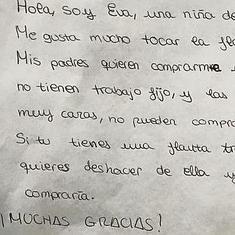 Hola, soy Eva, una niña de
Me gusta mucho tocar la
Mis padres quieren comprarme
no tienen trabajo fijo, y las
muy caras, no pueden
Si tu tienes una flauta
quieres deshacer de ella y
compraría.
¡MUCHAS GRACIAS!